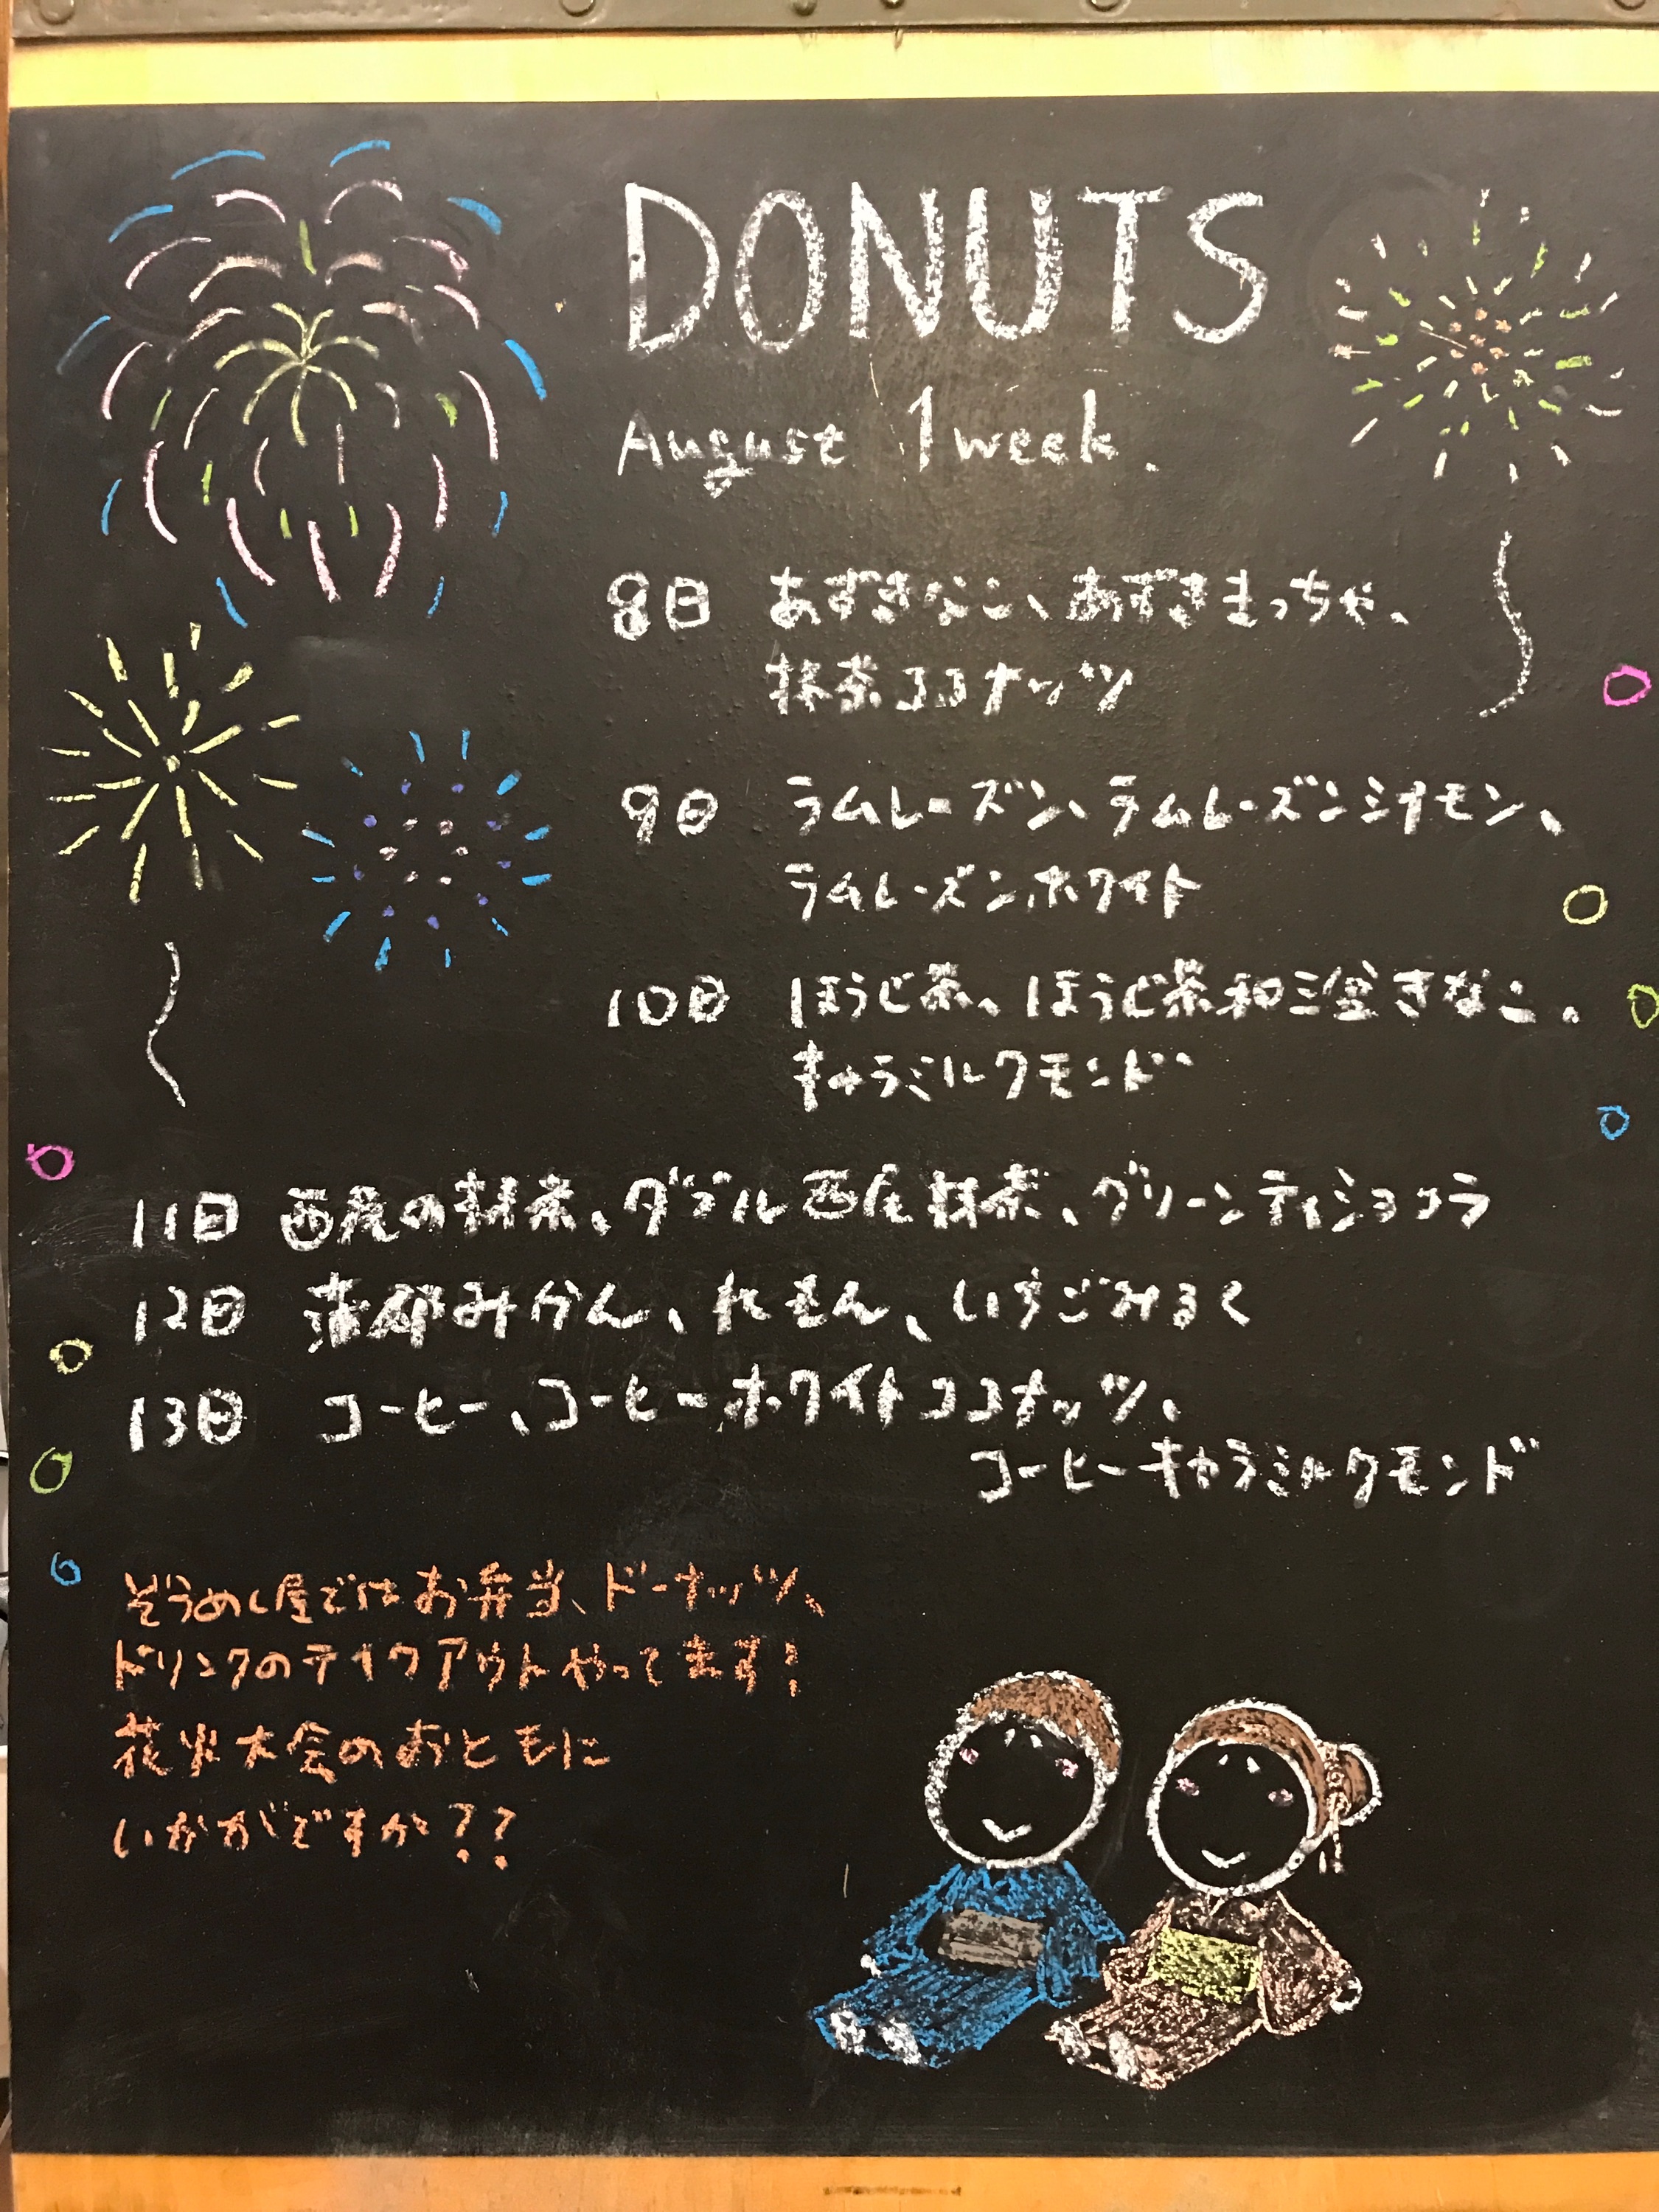 DONUTS
August 1week.
8日 あずきなこ、あずきまっちゃ、
抹茶ココナッツ
9日 ラムレーズン、ラムレーズンシナモン、
ラムレーズンホワイト
10日 ほうじ茶、ほうじ茶和三盆きなこ、
キャラミルクモンド
11日 西尾の抹茶、ダブル西尾抹茶、グリーンティショコラ
12日 蒲郡みかん、れもん、いちごみるく
13日 コーヒー、コーヒーホワイトココナッツ、
コーヒーキャラミルクモンド
ぞうめし屋ではお弁当、ドーナッツ、
ドリンクのテイクアウトやってます！
花火大会のおともに
いかがですか??